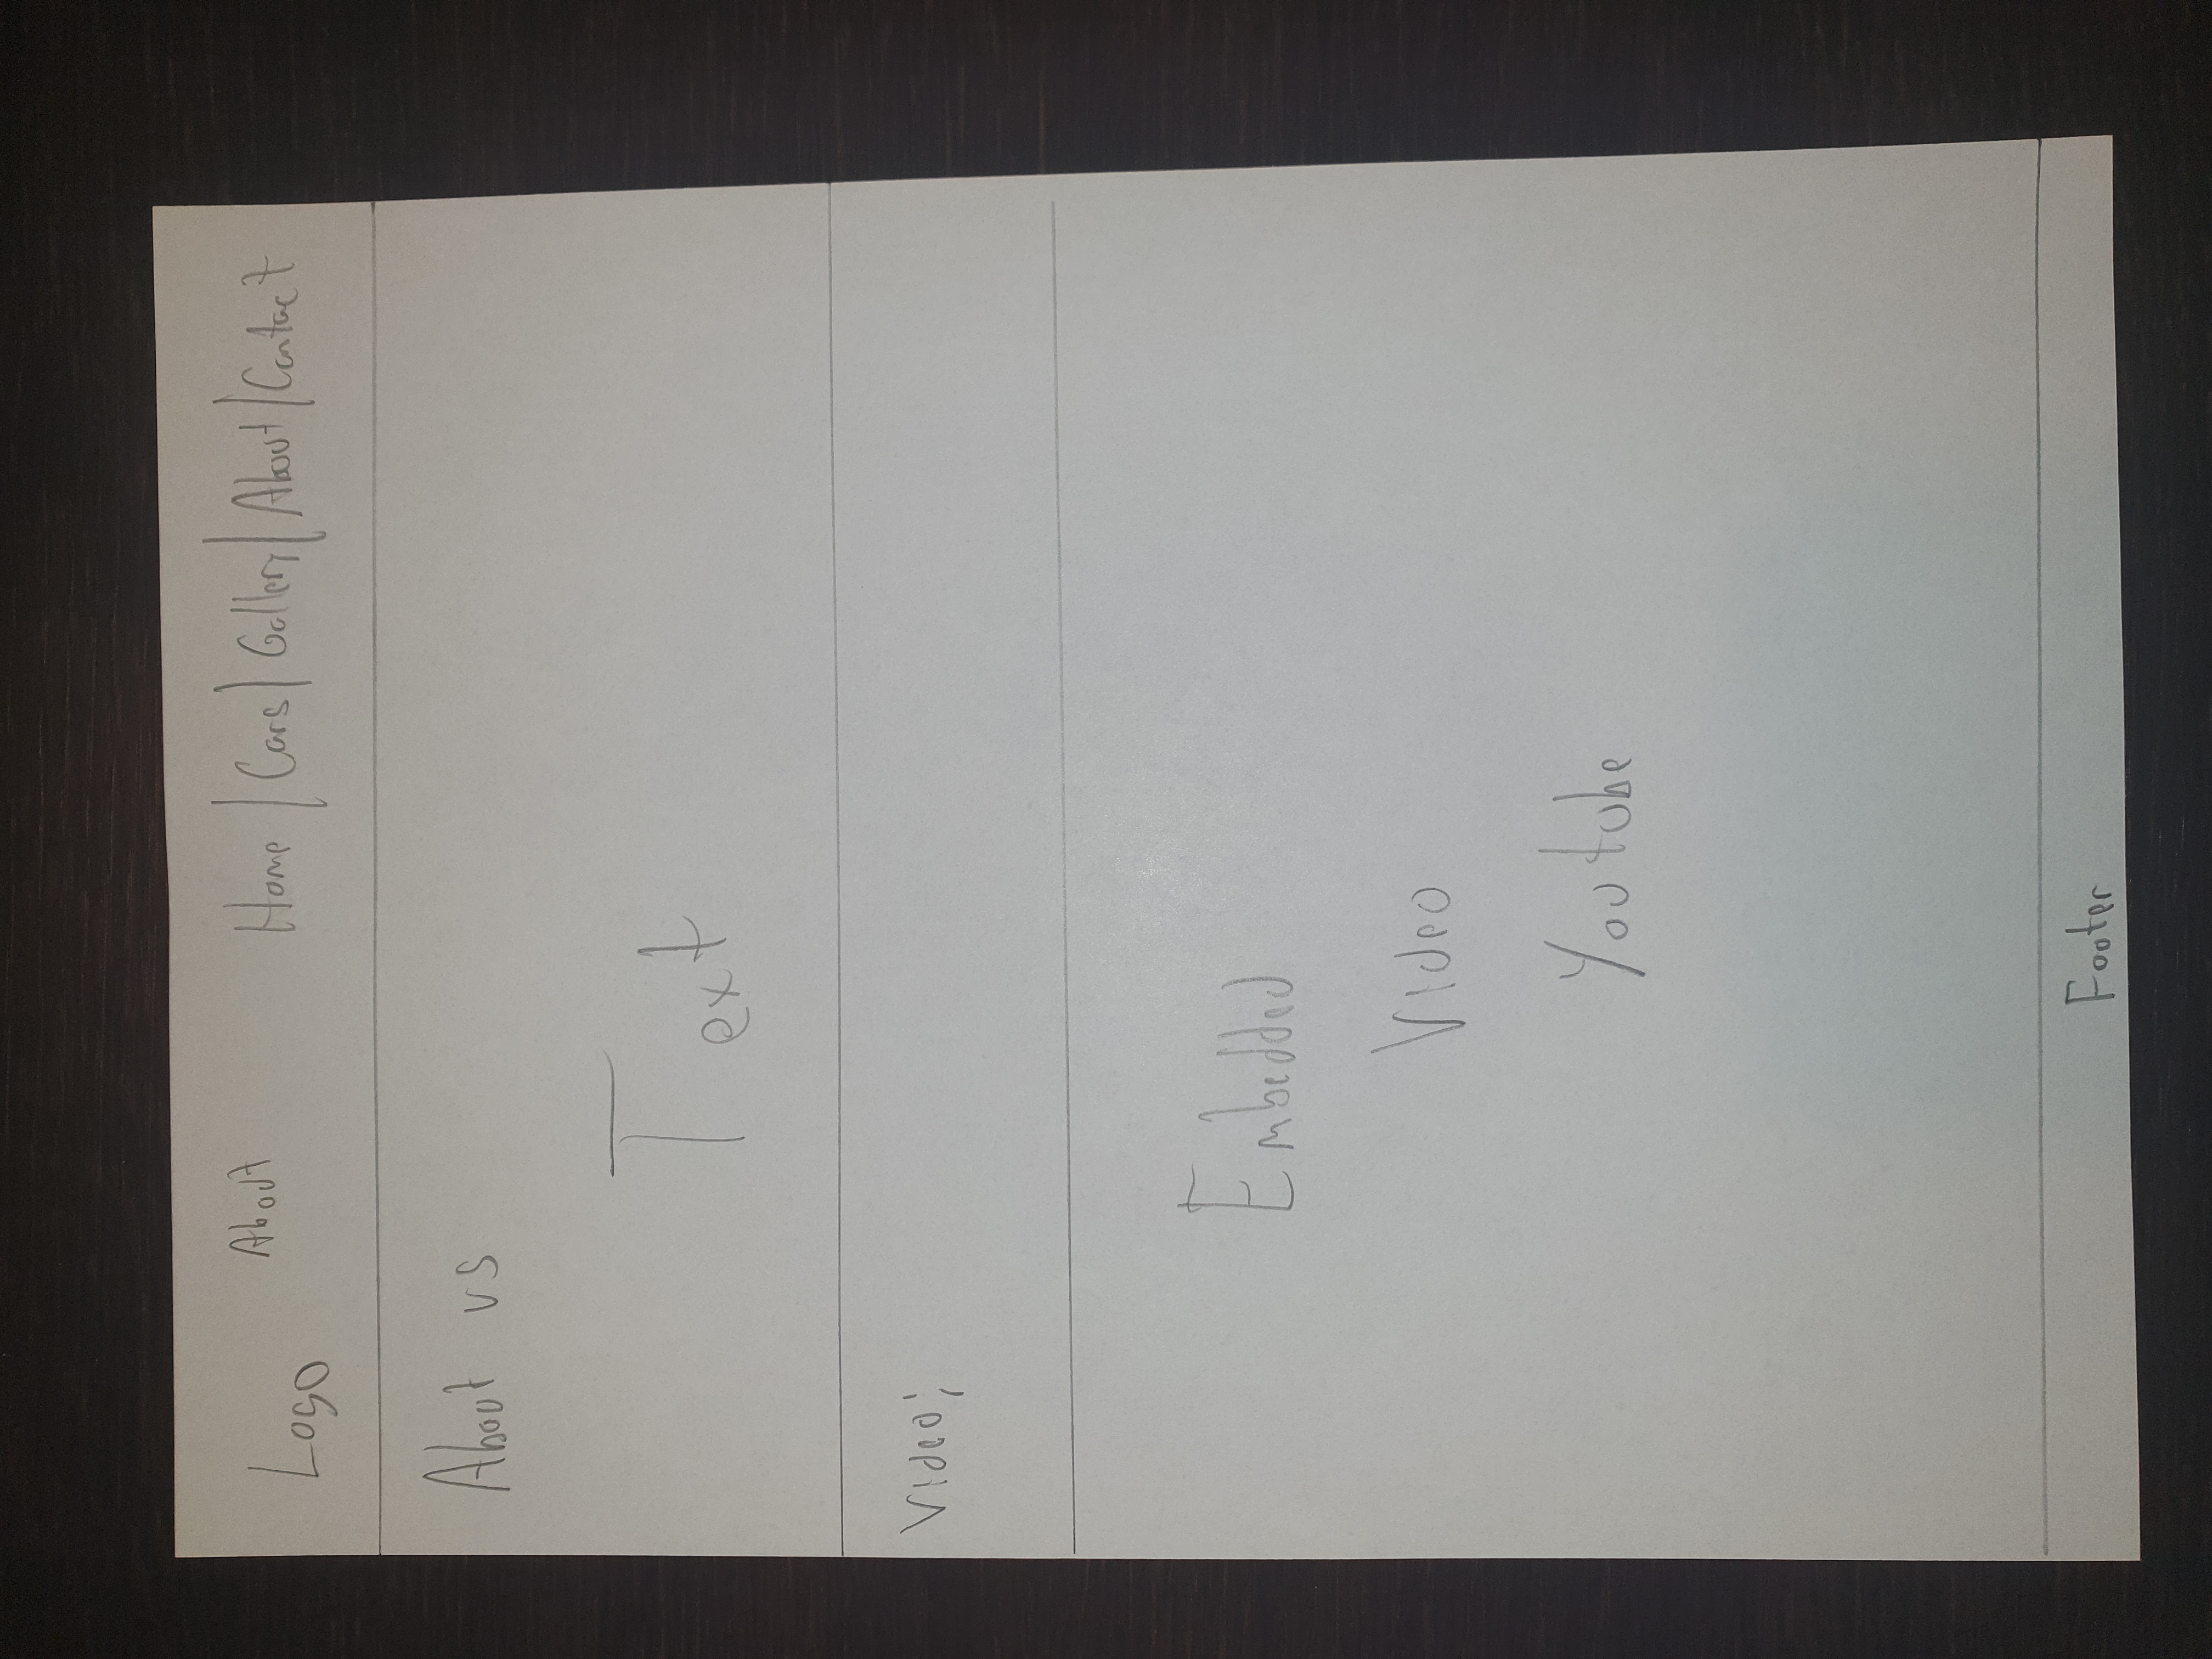 Logo About Home | Cars | Gallery | About | Contact
About us
Text
Video:
Embedded
Video
Youtube
Footer